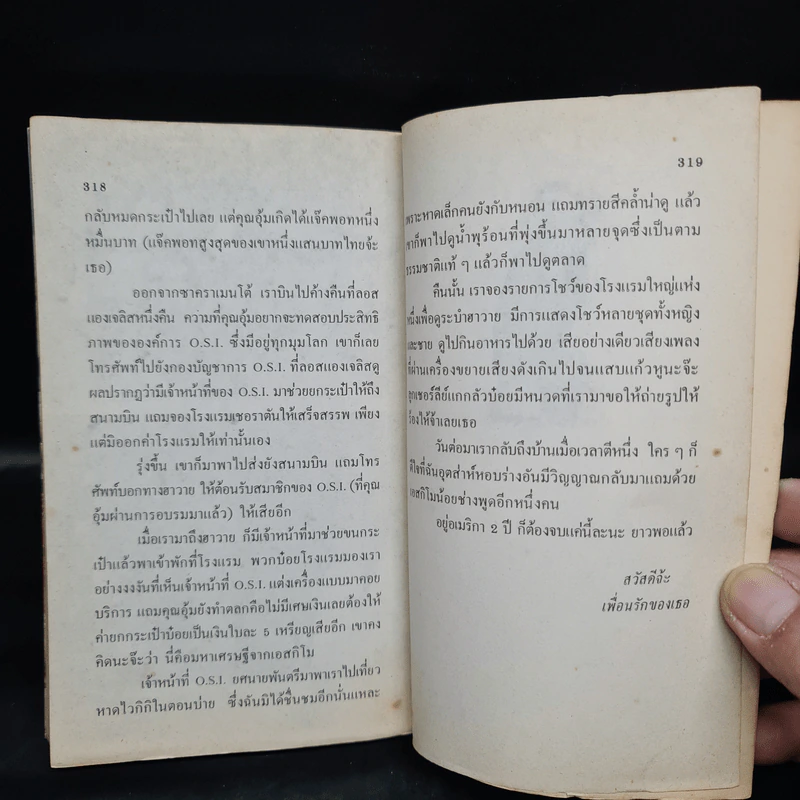 318
กลับหมดกระเป๋าไปเลย แต่คุณอุ้มเกิดได้แจ๊คพอทหนึ่ง
หมื่นบาท (แจ๊คพอทสูงสุดของเขาหนึ่งแสนบาทไทยจ้ะ
เธอ)
ออกจากซาคราเมนโต้ เราบินไปค้างคืนที่ลอส
แองเจลิสหนึ่งคืน ความที่คุณอุ้มอยากจะทดสอบประสิทธิ
ภาพขององค์การ O.S.I. ซึ่งมีอยู่ทุกมุมโลก เขาก็เลย
โทรศัพท์ไปยังกองบัญชาการ O.S.I. ที่ลอสแองเจลิสดู
ผลปรากฏว่ามีเจ้าหน้าที่ของ O.S.I. มาช่วยยกระเป๋าให้ถึง
สนามบิน แถมจองโรงแรมเชอราตันให้เสร็จสรรพ เพียง
แต่มิออกค่าโรงแรมให้เท่านั้นเอง
รุ่งขึ้น เขาก็มาพาไปส่งยังสนามบิน แถมโทร
ศัพท์บอกทางฮาวาย ให้ต้อนรับสมาชิกของ O.S.I. (ที่คุณ
อุ้มผ่านการอบรมมาแล้ว) ให้เสียอีก
เมื่อเรามาถึงฮาวาย ก็มีเจ้าหน้าที่มาช่วยขนกระ
เป๋าแล้วพาเข้าพักที่โรงแรม พวกบ๋อยโรงแรมมองเรา
อย่างงงงันที่เห็นเจ้าหน้าที่ O.S.I. แต่งเครื่องแบบมาคอย
บริการ แถมคุณอุ้มยังทำตลกคือไม่มีเศษเงินเลยต้องให้
ค่ายกกระเป๋าบ๋อยเป็นเงินใบละ 5 เหรียญเสียอีก เขาคง
คิดนะจ๊ะว่า นี่คือมหาเศรษฐีจากเอสกิโม
เจ้าหน้าที่ O.S.I. ยศนายพันตรีมาพาเราไปเที่ยว
หาดไวกิกิในตอนบ่าย ซึ่งฉันมิได้ชื่นชมอีกนั่นแหละ
319
เพราะหาดเล็กคนยังกับหนอน แถมทรายสีคล้ำน่าดู แล้ว
เขาก็พาไปดูน้ำพุร้อนที่พุ่งขึ้นมาหลายจุดซึ่งเป็นตาม
ธรรมชาติแท้ ๆ แล้วก็พาไปดูตลาด
คืนนั้น เราจองรายการโชว์ของโรงแรมใหญ่แห่ง
หนึ่งเพื่อดูระบำฮาวาย มีการแสดงโชว์หลายชุดทั้งหญิง
และชาย ดูไปกินอาหารไปด้วย เสียอย่างเดียวเสียงเพลง
ที่ผ่านเครื่องขยายเสียงดังเกินไปจนแสบแก้วหูนะจ๊ะ
ลูกเชอร์ลี่ย์แกกลัวบ๋อยมีหนวดที่เรามาขอให้ถ่ายรูปให้
ร้องไห้จ้าเลยเธอ
วันต่อมาเรากลับถึงบ้านเมื่อเวลาตีหนึ่ง ใคร ๆ ก็
ดีใจที่ฉันอุตส่าห์หอบร่างอันมีวิญญาณกลับมาแถมด้วย
เอสกิโมน้อยช่างพูดอีกหนึ่งคน
อยู่อเมริกา 2 ปี ก็ต้องจบแค่นี้ละนะ ยาวพอแล้ว
สวัสดีจ้ะ
เพื่อนรักของเธอ